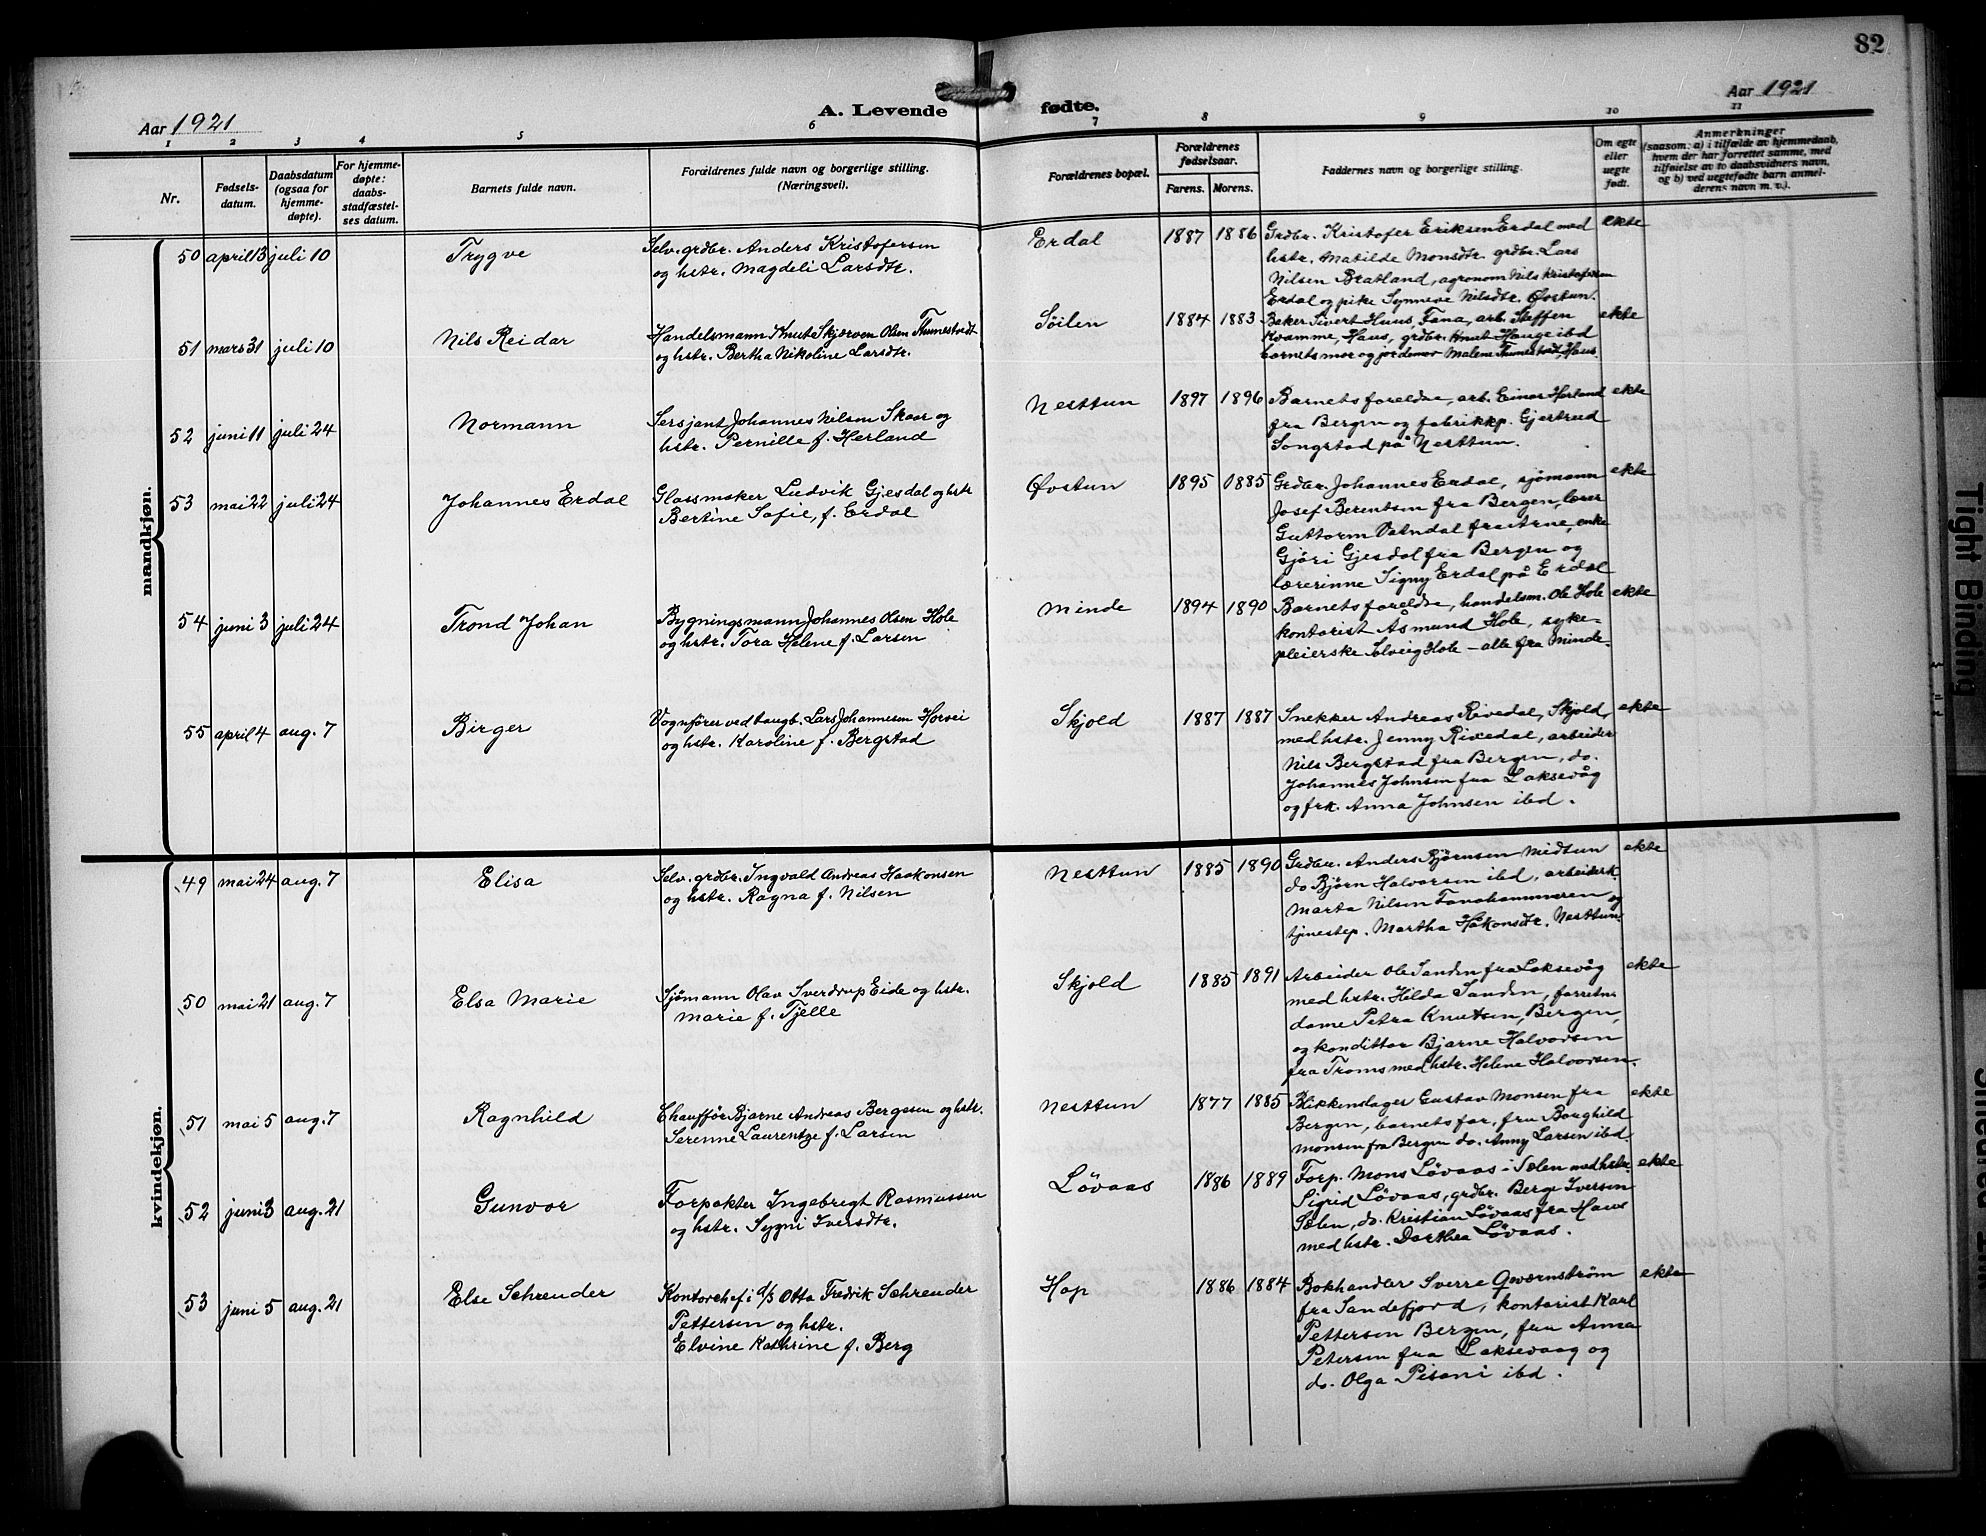 82
Aar 1921
A. Levende fødte.
Aar 1921
1 2 3 4 5 6 7 8 9 10 11
Nr.
Fødsels-
datum.
Daabsdatum
(ogsaa for
hjemme-
døpte).
For hjemme-
døpte:
daabs-
stadfæstel-
ses datum.
Barnets fulde navn.
Forældrenes fulde navn og borgerlige stilling.
(Næringsvei).
Forældrenes bopæl.
Forældrenes
fødselsaar.
Farens. Morens.
Faddernes navn og borgerlige stilling.
Om egte
eller
uegte
født.
Anmerkninger
(saasom: a) i tilfælde av hjemmedaab,
hvem der har forrettet samme, med
tilføielse av to daabsvidners navn,
og b) ved uegtefødte barn anmel-
derens navn m. v.).
mandkjøn.
50 april 13 juli 10 Trygve
Selv. grdbr. Anders Kristofersen
og hstr. Magdeli Larsdtr.
Erdal 1887 1886
Grdbr. Kristofer Eriksen Erdal med
hstr. Matilde Monsdtr. grdbr. Lars
Nilsen Bratland, agronom Nils Kristofersen
Erdal og pike Synneve Nilsdtr. Øvstun.
ekte
51 mars 31 juli 10 Nils Reidar
Handelsmann Knut Skjerven Olsen Thunestvedt
og hstr. Bertha Nikoline Larsdtr.
Söilen 1884 1883
Baker Sivert Huus, Fana, arb. Steffen
Kvamme, Haus, grdbr. Knut Hauge ibd
barnets mor og jordemor Malene Thunestvedt, Haus.
ekte
52 juni 11 juli 24 Normann
Sersjant Johannes Nilsen Skaar og
hstr. Pernille f. Herland
Nesttun 1897 1896
Barnets foreldre, arb. Einar Herland
fra Bergen og fabrikkp. Gjertrud
Songstad på Nesttun.
ekte
53 mai 22 juli 24 Johannes Erdal
Glassmaker Ludvik Gjesdal og hstr
Bertine Sofie, f. Erdal
Øvstun 1895 1885
Grdbr. Johannes Erdal, sjømann
Josef Berentsen fra Bergen, lærer
Guttorm Vatndal fra Arne, enke
Gjöri Gjesdal fra Bergen og
lærerinne Signy Erdal på Erdal
ekte
54 juni 3 juli 24 Trond Johan
Bygningsmann Johannes Olsen Hole
og hstr. Tora Helene f. Larsen
Minde 1894 1890
Barnets foreldre, handelsm. Ole Hole
kontorist Asmund Hole, syke-
pleierske Solveig Hole – alle fra Minde.
ekte
55 april 4 aug. 7 Birger
Vognfører ved taugb. Lars Johannesen Horsei
og hstr. Karoline f. Bergstad
Skjold 1887 1887
Snekker Andreas Rivedal, Skjold,
med hstr. Jenny Rivedal, arbeider
Nils Bergstad fra Bergen, do.
Johannes Johnsen fra Laksevåg
og frk. Anna Johnsen ibd.
ekte
kvindekjøn.
49 mai 24 aug. 7 Elisa
Selv. grdbr. Ingvald Andreas Haakonsen
og hstr. Ragna f. Nilsen
Nesttun 1885 1890
Grdbr. Anders Bjørnsen Midtun
do Bjørn Halvorsen ibd, arbeidersk
Marta Nilsen Fanahammeren og
tjenestep. Martha Håkonsdtr. Nesttun.
ekte
50 mai 21 aug. 7 Elsa Marie
Sjömann Olav Sverdrup Eide og hstr.
Marie f. Tjelle
Skjold 1885 1891
Arbeider Ole Sanden fra Laksevåg
med hstr. Hilda Sanden, forretn.
dame Petra Knutsen, Bergen,
og konditor Bjarne Halvorsen
fra Troms med hstr. Helene Halvorsen.
ekte
51 mai 5 aug. 7 Ragnhild
Chauffør Bjarne Andreas Bergesen og hstr.
Serenne Laurentze f. Larsen
Nesttun 1877 1885
Blikkenslager Gustav Monsen fra
Bergen, barnets far, fru Borghild
Monsen fra Bergen do. Anny Larsen ibd.
ekte
52 juni 3 aug. 21 Gunvor
Forpakter Ingebrigt Rasmussen
og hstr. Sygni Iversdtr.
Lövaas 1886 1889
Forp. Mons Lövaas i Sælen med hstr.
Sigrid Lövaas, grdbr. Berge Iversen
Sælen, do. Kristian Lövaas fra Haus
med hstr. Dorthea Lövaas.
ekte
53 juni 5 aug. 21 Else Schreuder
Kontorchef i A/S Otto Fredrik Schreuder
Pettersen og hstr.
Elvine Kathrine f. Berg
Hop 1886 1884
Bokhandler Sverre Qwærnström
fra Sandefjord, kontorist Karl
Pettersen Bergen, fru Anna
Petersen fra Laksevaag og
do. Olga Pisani ibd.
ekte
Tight Binding